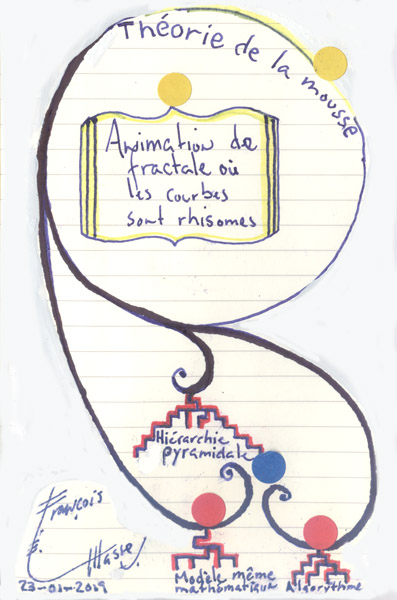 Théorie de la mousse
Animation de
fractale où
les courbes
sont rhisomes
Hiérarchie
pyramidale
Modèle même
mathématique
Algorythme
François
23-01-2019